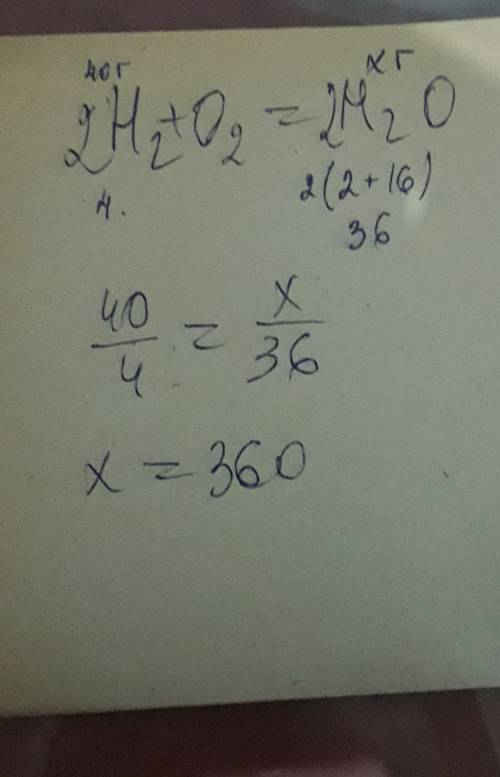 40г xг
2H₂+O₂=2H₂O
4. 2(2+16)
36
40/4 = x/36
x=360